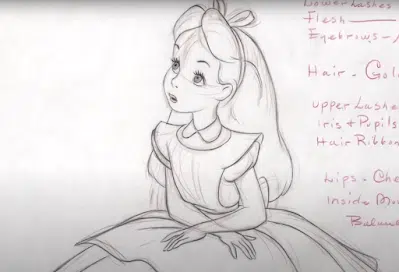 Lower Lashes
Flesh
Eyebrows -
Hair - Gol
upper Lashe
iris & Pupils
Hair Ribbon
Lips - Che
Inside Mou